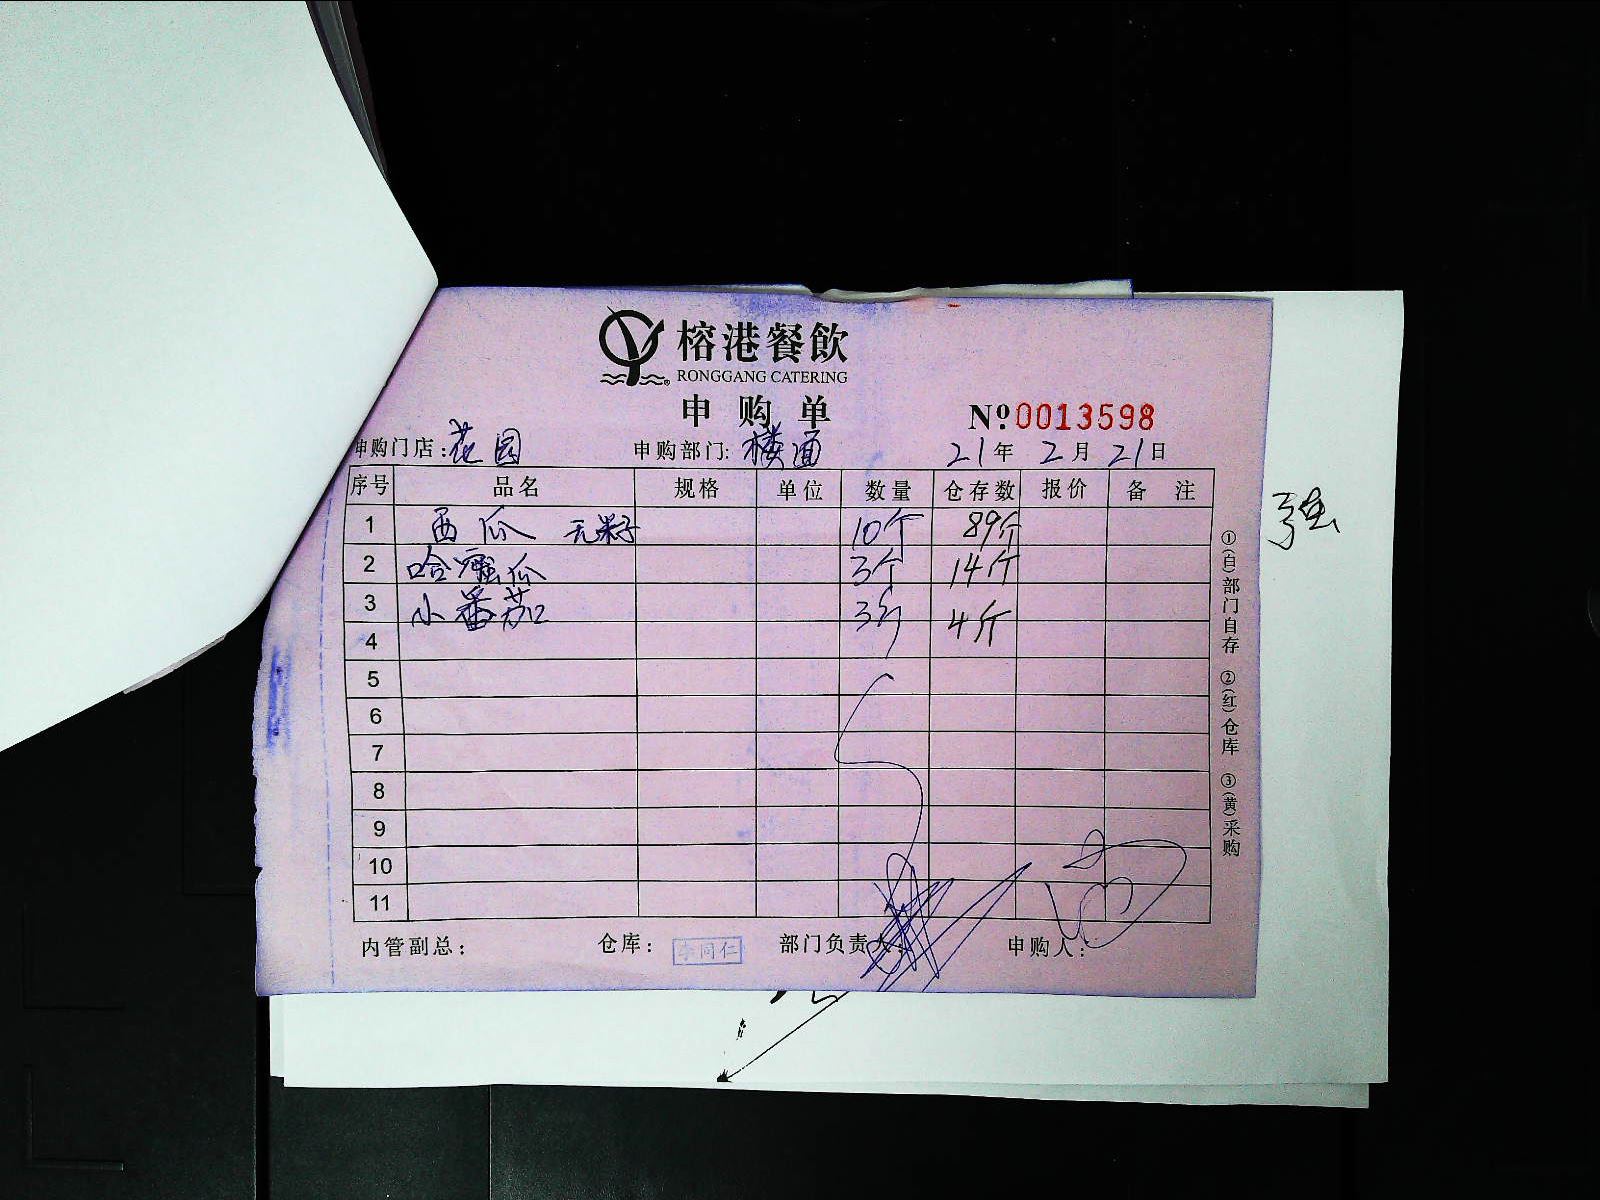 榕港餐飲
RONGGANG CATERING
申购单
№ 0013598
申购门店:花园 申购部门:楼面 21年2月21日
序号 品名 规格 单位 数量 仓存数 报价 备注
1 西瓜 无籽 10个 89斤
2 哈密瓜 3个 14斤
3 小番茄 3斤 4斤
4
5
6
7
8
9
10
11
内管副总: 仓库: 李同仁 部门负责人: 申购人:
①(白)部门自存 ②(红)仓库 ③(黄)采购